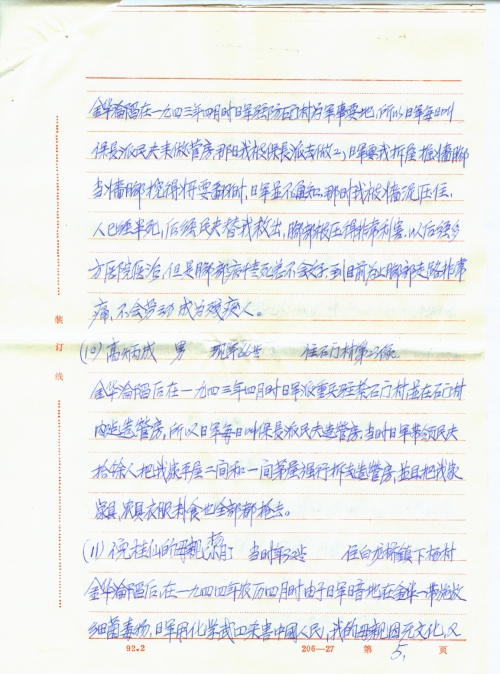 金华沦陷在一九四三年四月时日军强防石门村为军事要地,所以日军每日叫
保長派民夫来做营房,那日我被保長派去做工,日军要我拆屋掘墙脚
当墙脚挖得将要翻时,日军並不通知,那时我被墙泥压住,
人已经半死,后经民夫替我救出,脚部被压得非常利害,以后经多
方医院医治,但是脚部病情总不会好,到目前为止脚部走路非常
痛,不会劳动成为残疾人。
(10) 高炳成 男 现年66岁 住石门村第
金华沦陷后在一九四三年四月时日军派重兵驻紮石门村並在石门村
内建造营房,所以日军每日叫保長派民夫造营房,当时日军带领民夫
拾余人把我家平屋二间和一间茅屋强行拆去造营房,並且把我家
家具,农具衣服料食也全部都抢去。
(11) 倪桂仙的母親 当时年32岁 住白龙桥鎮下杨村
金华沦陷后,在一九四四年农历四月时由于日军暗地在金华一带施放
细菌毒物,日军用化学武口来害中國人民,我的母親因无文化,又
装订线
92.2 206—27 第 5, 页